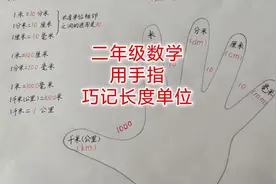 1米=10分米
1分米=10厘米
1厘米=10毫米
长度单位相邻
之间的进率是10
1米=100厘米
1分米=100毫米
1米=1000毫米
1千米(公里)=1000米
1千米=1公里
二年级数学
用手指
巧记长度单位
米
(m)
分米
(dm)
厘米
(cm)
毫米
(mm)
10
10
10
1000
千米(公里)
(km)